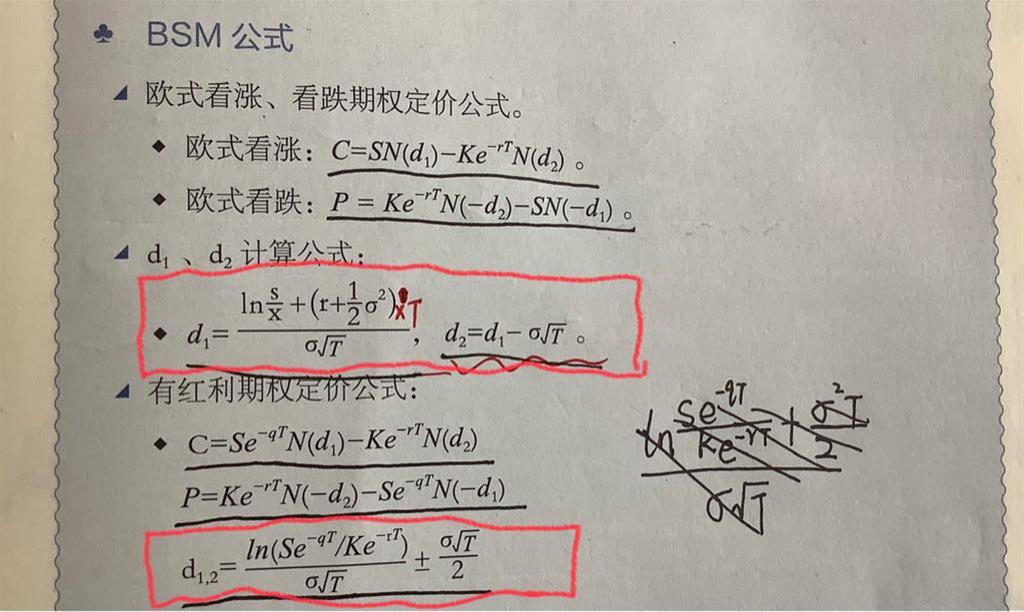 ♣ BSM 公式
欧式看涨、看跌期权定价公式。
◆ 欧式看涨：C=SN(d₁)−Ke⁻ʳᵀN(d₂)。
◆ 欧式看跌：P = Ke⁻ʳᵀN(−d₂)−SN(−d₁)。
d₁、d₂ 计算公式：
◆ d₁= (ln s/x +(r+1/2 σ²)×T) / (σ√T)， d₂=d₁− σ√T。
有红利期权定价公式：
◆ C=Se^(−qT)N(d₁)−Ke^(−rT)N(d₂)
P=Ke^(−rT)N(−d₂)−Se^(−qT)N(−d₁)
d₁,₂= ln(Se^(−qT)/Ke^(−rT)) / (σ√T) ± σ√T / 2
(ln Se^(−qT)/Ke^(−rT) + σ²T/2) / (σ√T)